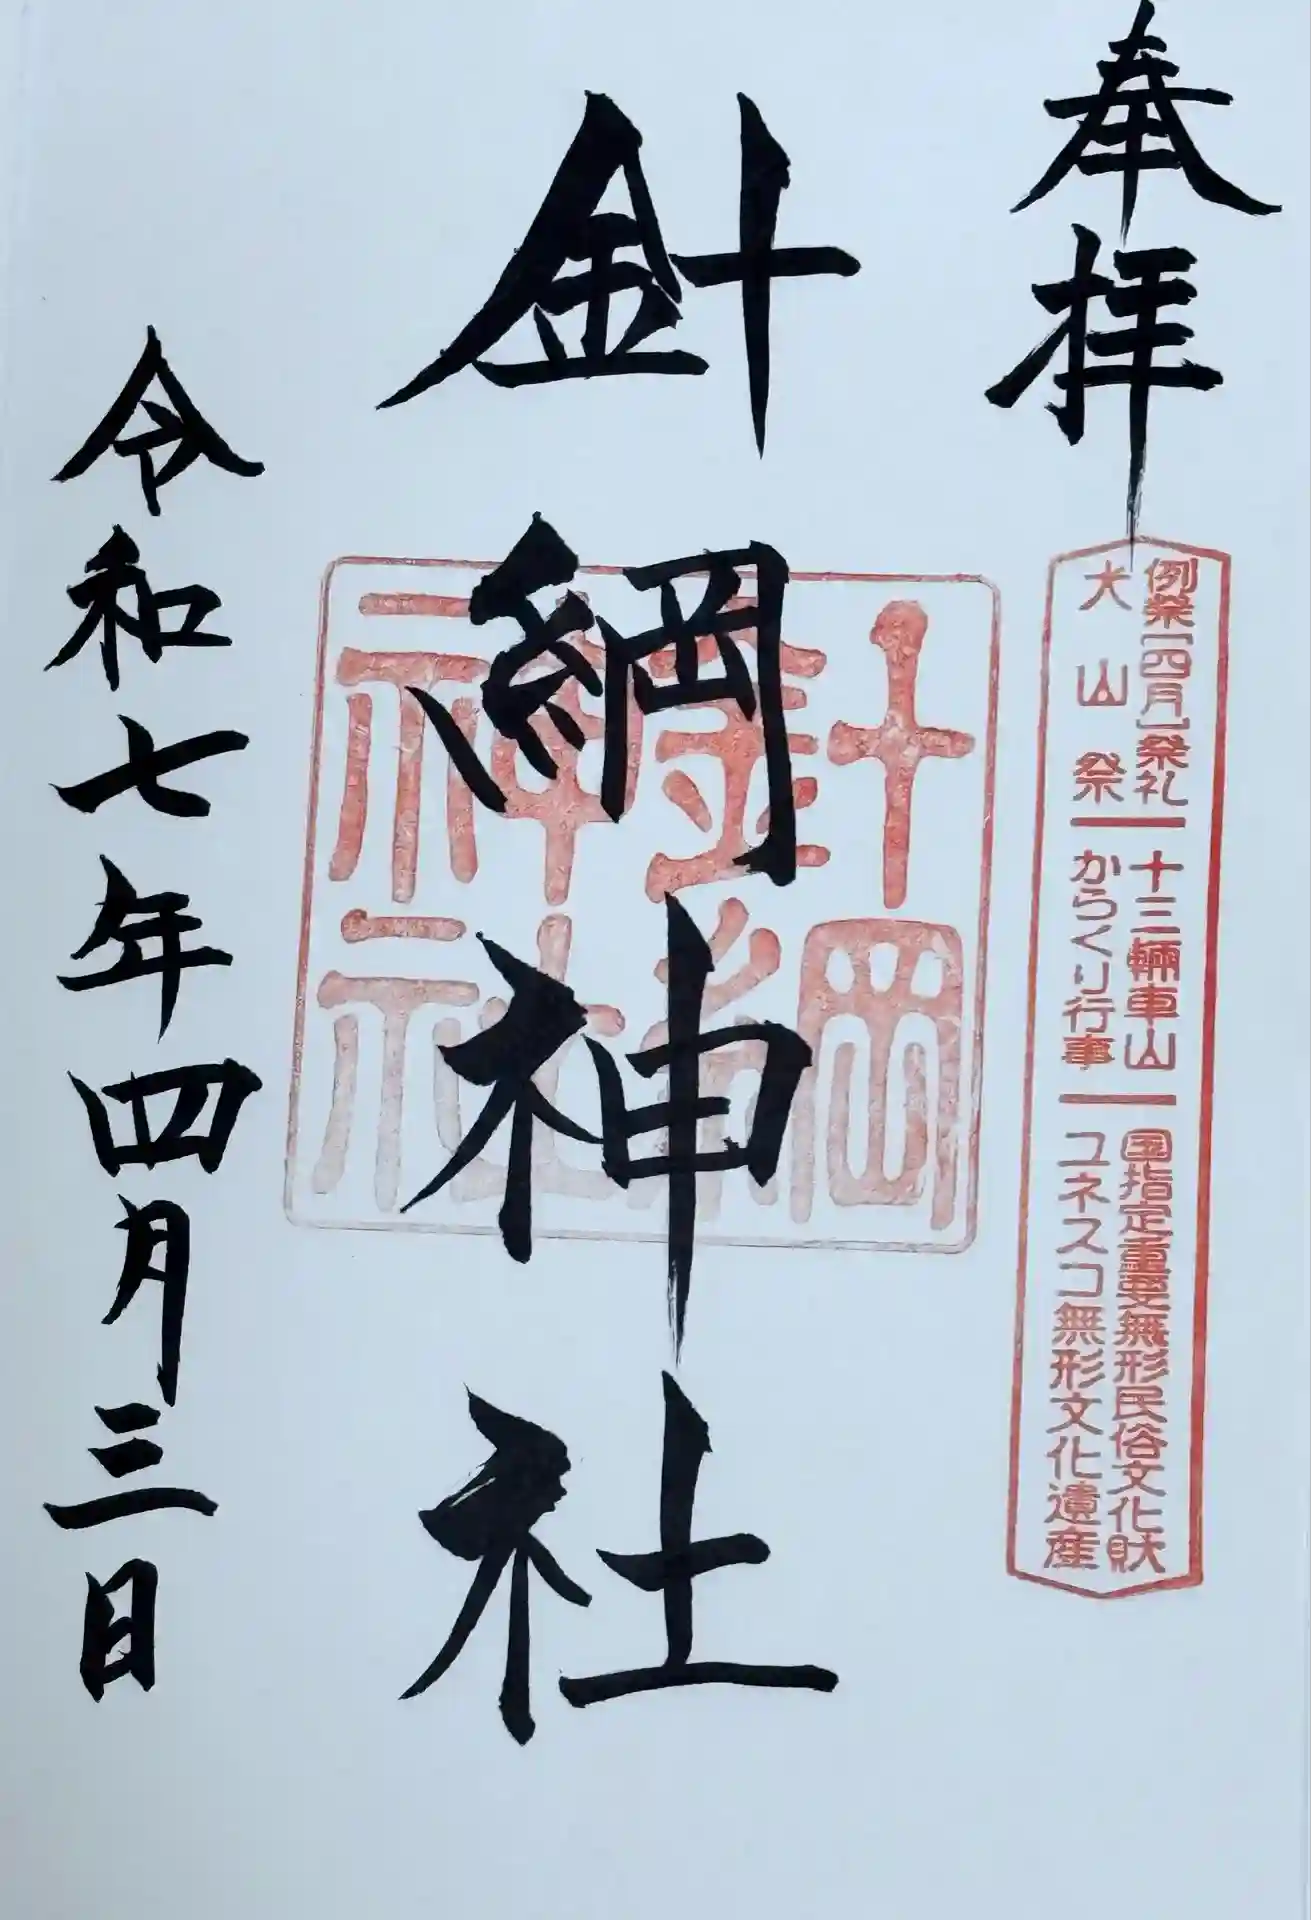 奉拝
例祭［四月］祭礼 十三輛車山 国指定重要無形民俗文化財
犬山祭 からくり行事 ユネスコ無形文化遺産
針綱神社
針綱
神社
令和七年四月三日